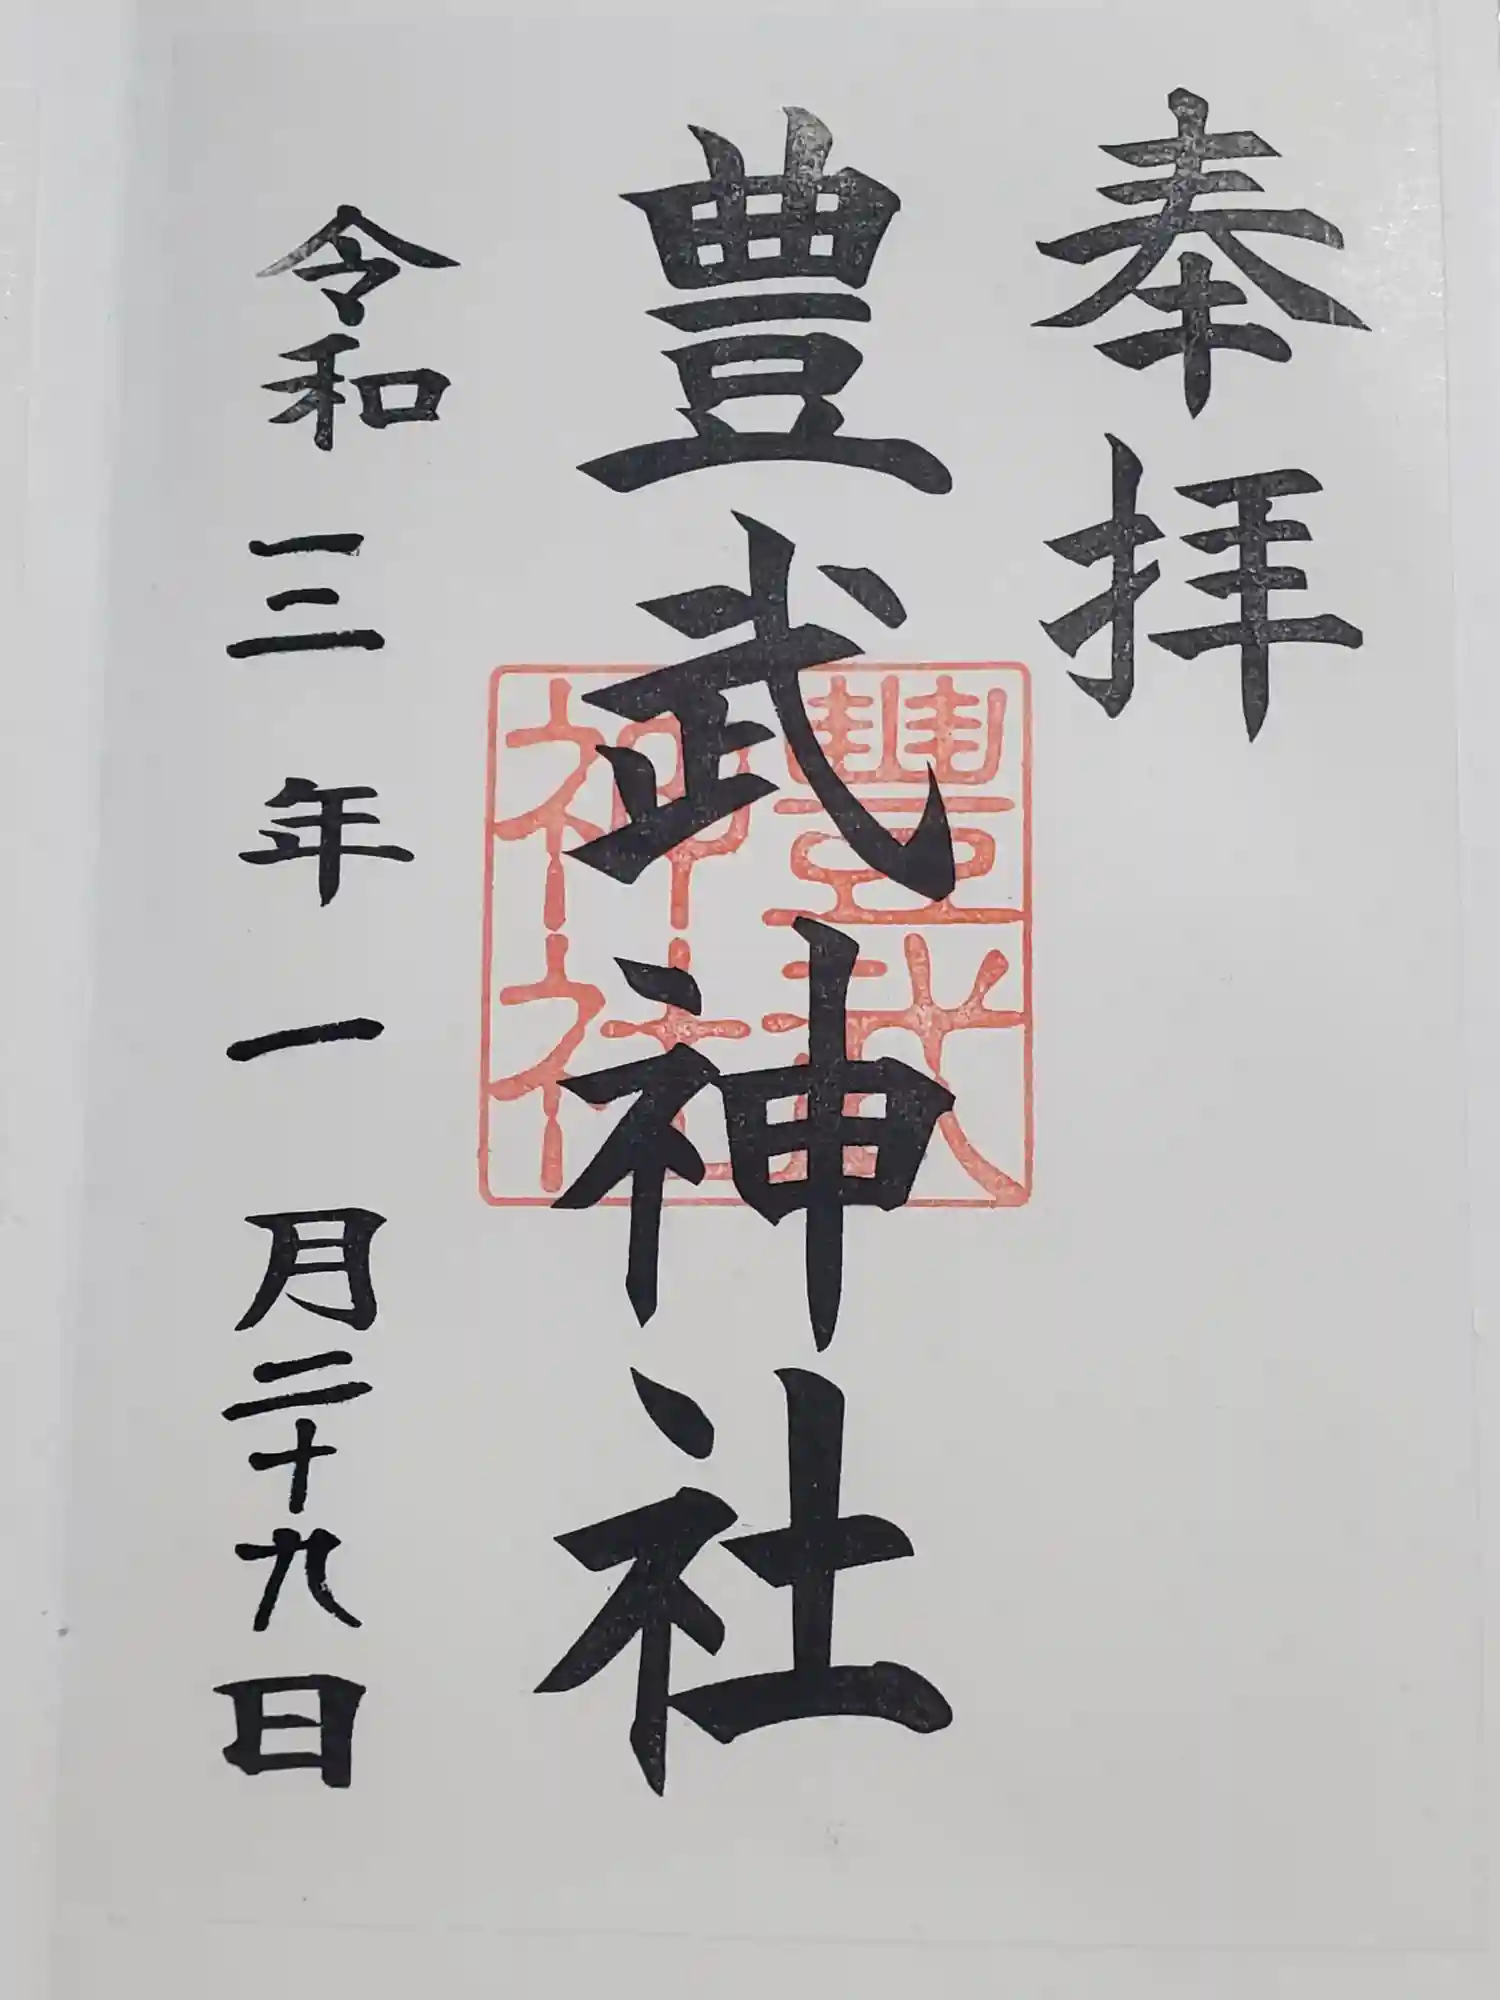 奉拝
豊武神社
豊武
神社
令和三年一月二十九日